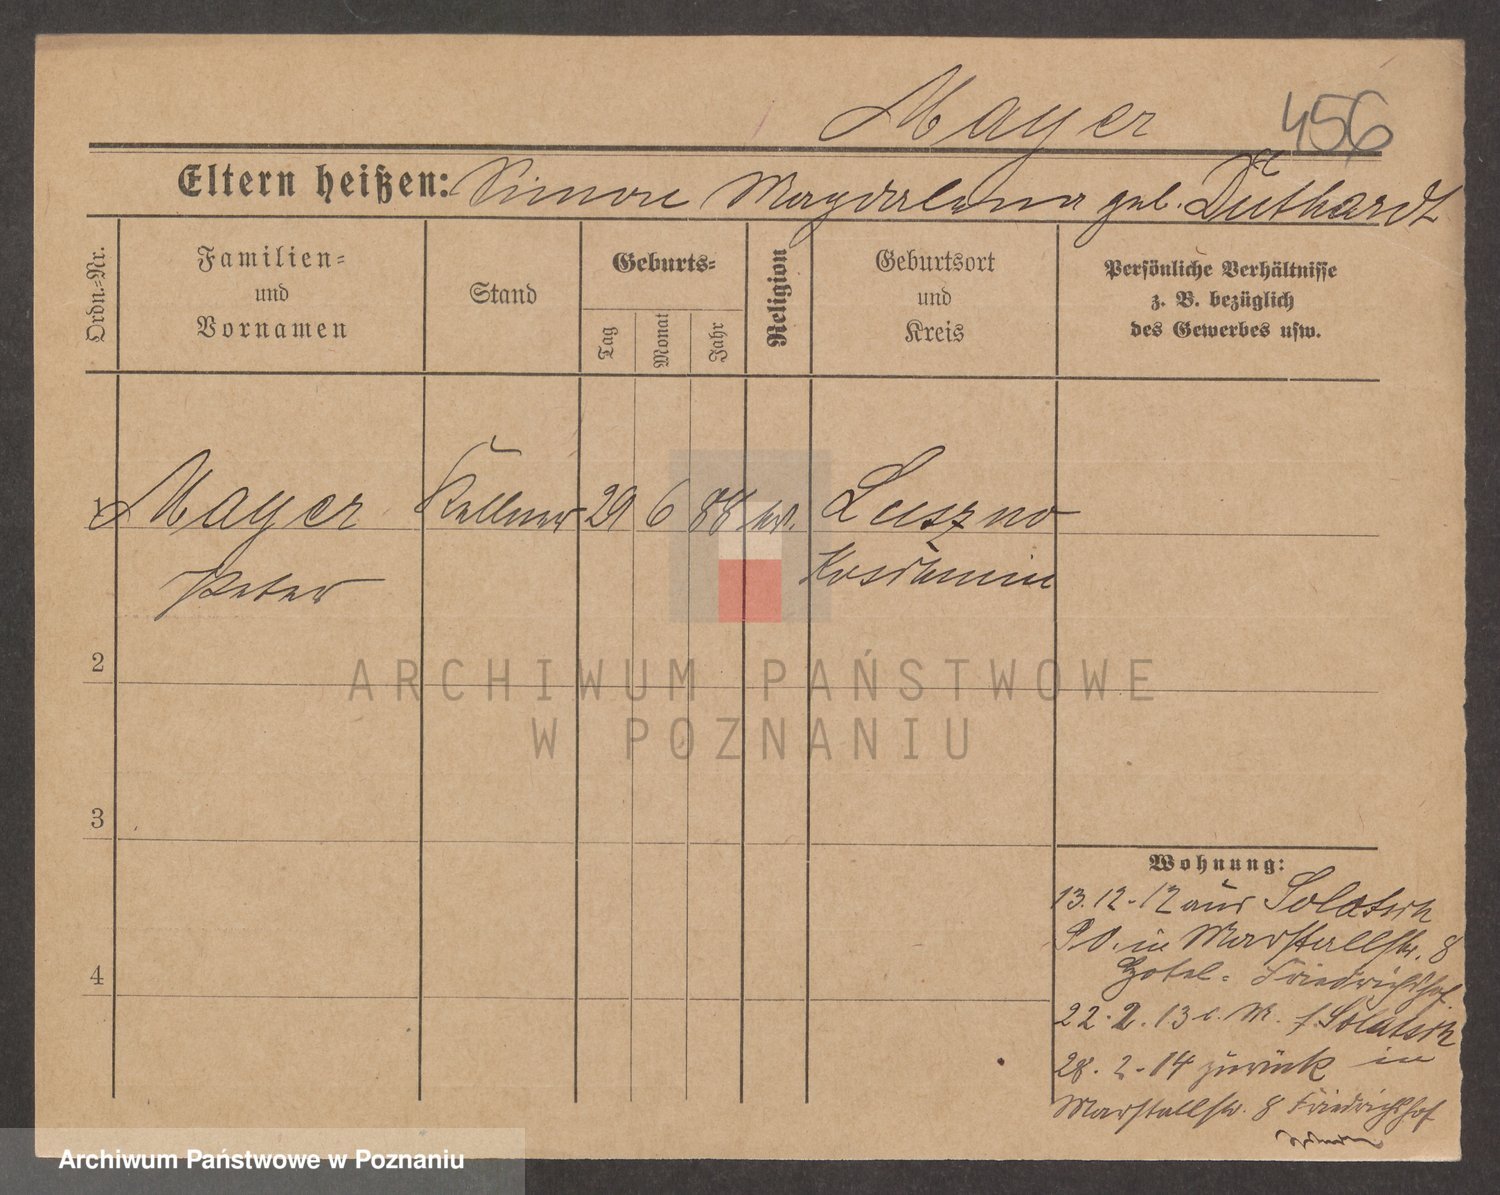 Mayer 456
Eltern heißen: Simon Magdalena geb. Duthardt
Ordn.=Nr.
Familien=
und
Vornamen
Stand
Geburts=
Tag
Monat
Jahr
Religion
Geburtsort
und
Kreis
Persönliche Verhältnisse
z. B. bezüglich
des Gewerbes usw.
1 Mayer Kellner 29 6 88 Luszno
Peter Koschmin
2
3
4
Wohnung:
13.12.12 aus Solatsch
in Marstallstr. 8
Hotel=Friedrichshof
22.2.13 Solatsch
28.2.14 zurück in
Marstallstr. 8 Friedrichshof
ARCHIWUM PAŃSTWOWE
W POZNANIU
Archiwum Państwowe w Poznaniu